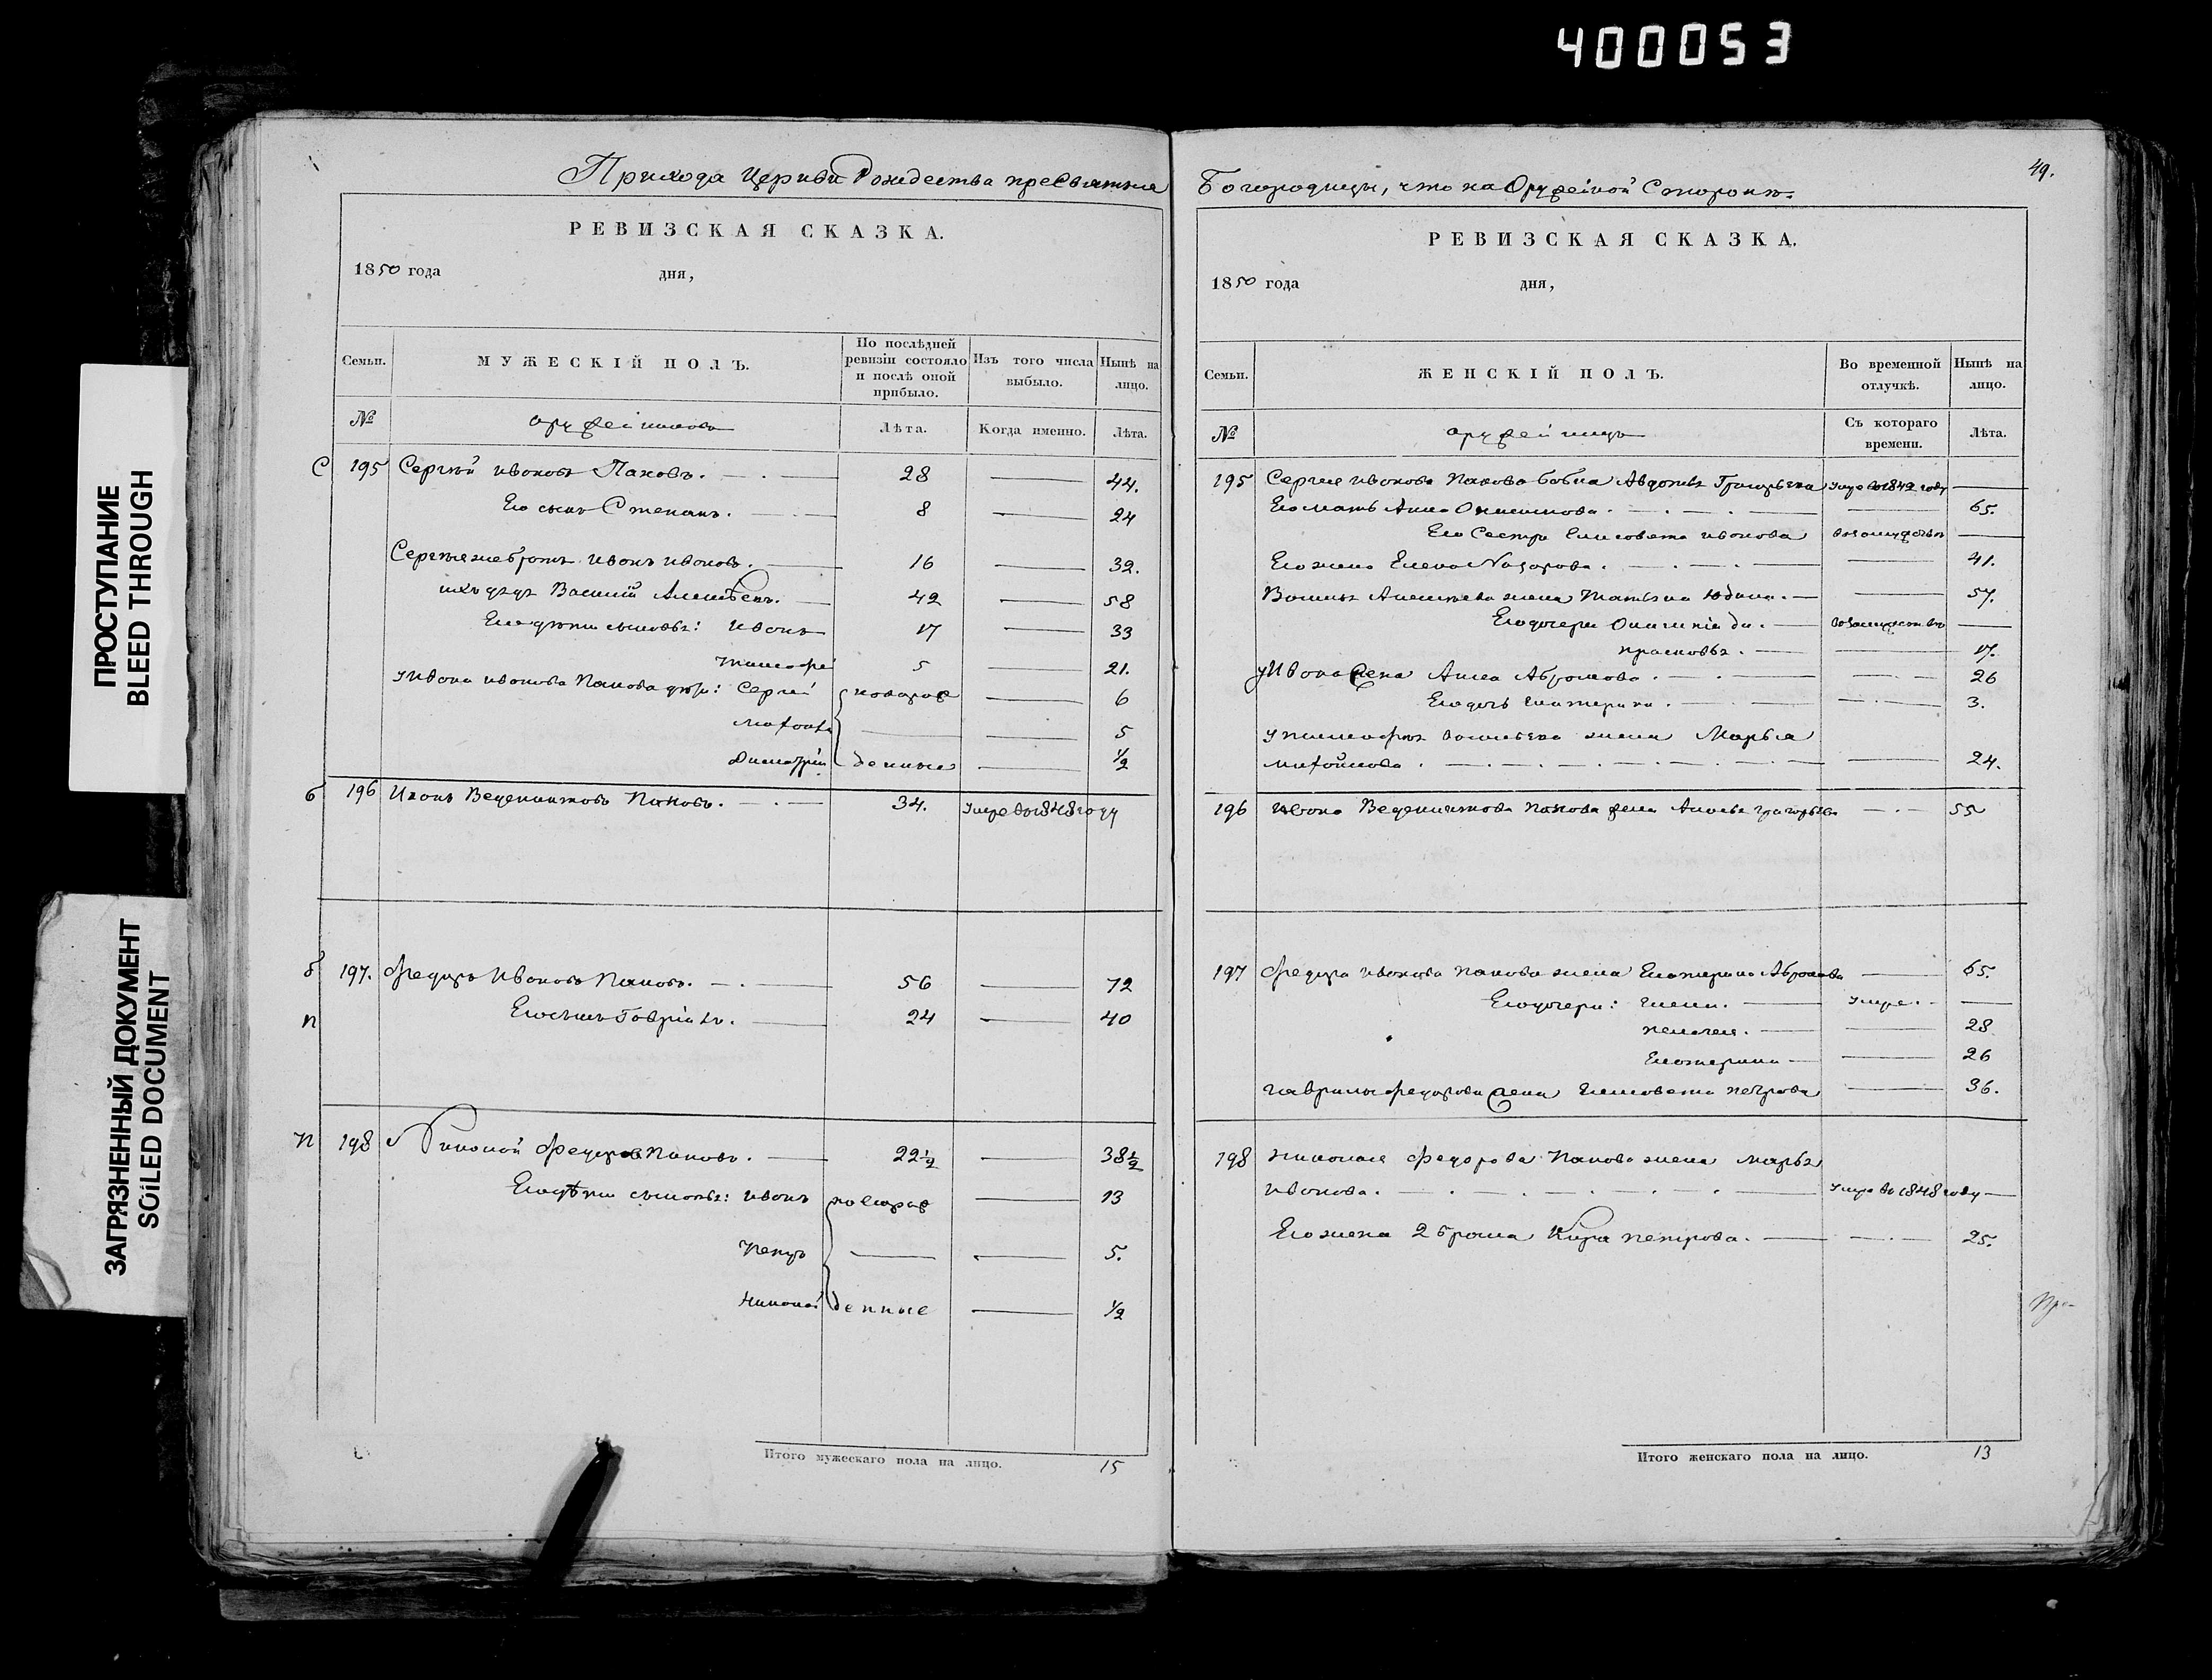 400053
ПРОСТУПАНИЕ
BLEED THROUGH
ЗАГРЯЗНЕННЫЙ ДОКУМЕНТ
SOILED DOCUMENT
Прихода Церкви Рождества пресвятыя
РЕВИЗСКАЯ СКАЗКА.
1850 года дня,
Семьи. МУЖЕСКІЙ ПОЛЪ. По послѣдней ревизіи состояло и послѣ оной прибыло. Изъ того числа выбыло. Нынѣ на лицо.
№ оружейниковъ Лѣта. Когда именно. Лѣта.
С 195 Сергѣй ивановъ Пановъ. 28 — 44.
Его сынъ Степанъ. 8 — 24
Сергѣя же братъ иванъ ивановъ. 16 — 32.
ихъ дядя Василій Алексѣевъ. 42 — 58
Его дѣти сыновья: иванъ 17 — 33
тимофей 5 — 21.
у ивана иванова Панова дѣти: Сергѣй новорож — 6
5
Дмитрій денные — 1/2
б 196 Иванъ Веденихтовъ Пановъ. 34. Умре во 1848 году
б 197. Федоръ Ивановъ Пановъ. 56 — 72
п Его сынъ Гаврила. 24 — 40
п 198 Николай Федоровъ Пановъ. 22 1/2 — 38 1/2
Его дѣти сыновья: иванъ новорож — 13
петръ — — 5.
Николай денные — 1/2
Итого мужескаго пола на лицо. 15
49.
Богородицы, что на Оружейной Сторонѣ.
РЕВИЗСКАЯ СКАЗКА.
1850 года дня,
Семьи. ЖЕНСКІЙ ПОЛЪ. Во временной отлучкѣ. Нынѣ на лицо.
№ оружейницъ Съ котораго времени. Лѣта.
195 Сергея иванова Панова бабка Авдотья Григорьева Умре во 1842 году —
Его мать Анна Онисимова. — 65.
Его Сестра Елисовета иванова взамужствѣ —
Его жена Елена Назарова. — 41.
Василья Алексѣева жена Татьяна Юдина. — 57.
Его дочери взамужствѣ —
прасковья. — 17.
у Ивана жена Анна Абрамова. — 26
Его дочь Екатерина. — 3.
у тимофея Васильева жена Марья
— 24.
196 Ивана Веденихтова Панова жена григорьева — 55
197 Федора иванова Панова жена Екатерина Абрамова — 65.
Его дочери: умре. —
пелагея. — 28
Екатерина — 26
гаврилы федорова жена Елисовета петрова — 36.
198 николая Федорова Панова жена марья
иванова. Умре во 1848 году —
Его жена 2 брака Кира петрова. — 25.
Итого женскаго пола на лицо. 13